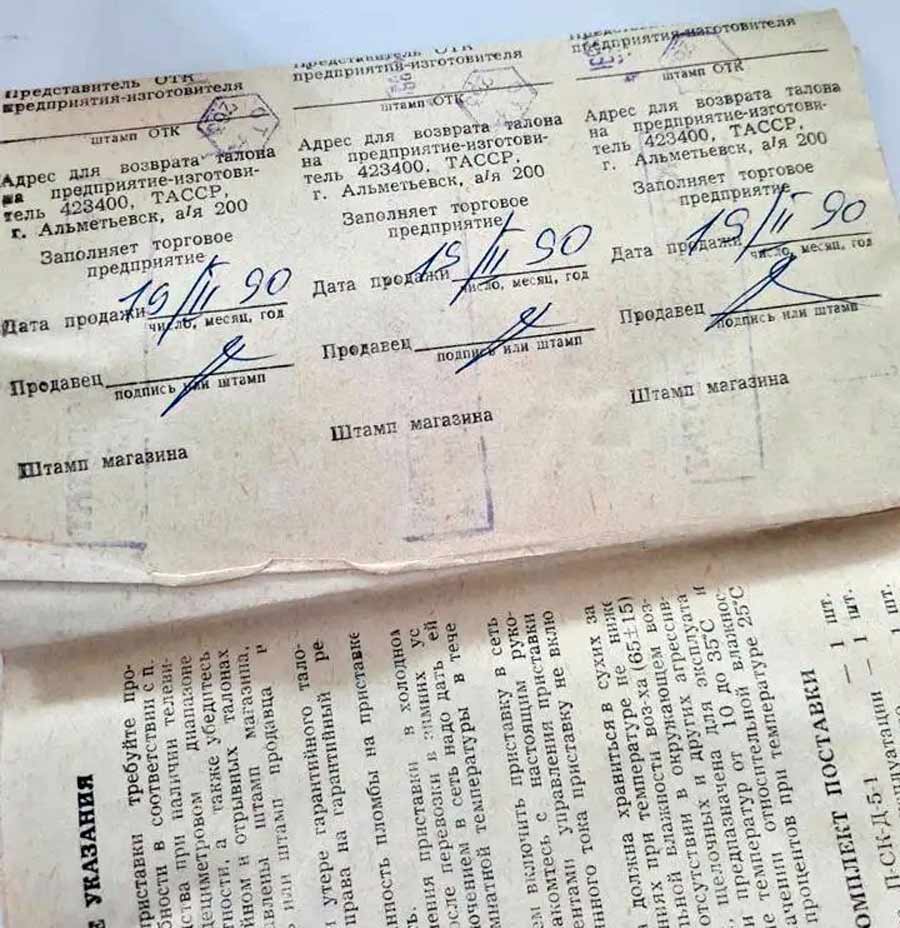 Представитель ОТК
предприятия-изготовителя
штамп ОТК
Адрес для возврата талона
на предприятие-изготови-
тель 423400, ТАССР,
г. Альметьевск, а/я 200
Заполняет торговое
предприятие
Дата продажи 19/II 90
число, месяц, год
Продавец
подпись или штамп
Штамп магазина
Представитель ОТК
предприятия-изготовителя
штамп ОТК
Адрес для возврата талона
на предприятие-изготови-
тель 423400, ТАССР,
г. Альметьевск, а/я 200
Заполняет торговое
предприятие
Дата продажи 19/III 90
число, месяц, год
Продавец
подпись или штамп
Штамп магазина
Представитель ОТК
предприятия-изготовителя
штамп ОТК
Адрес для возврата талона
на предприятие-изготови-
тель 423400, ТАССР,
г. Альметьевск, а/я 200
Заполняет торговое
предприятие
Дата продажи 19/II 90
число, месяц, год
Продавец
подпись или штамп
Штамп магазина
УКАЗАНИЯ
приставки требуйте про-
в соответствии с п.
при наличии телеви-
дециметровом диапазоне
а также убедитесь
и отрывных талонах
штамп магазина,
или штамп продавца
утере гарантийного тало-
права на гарантийный ре
пломбы на приставке
приставки в холодном
перевозки в зимних ус
в сеть надо дать ей
температуры в тече
включить приставку в сеть
с настоящим руко-
управления приставки
тока приставку не вклю
должна храниться в сухих за
при температуре не ниже
влажности воз-ха (65±15)
в окружающем воз-
отсутствии агрессив-
щелочных и других
предназначена для эксплуата
температур от 10 до 35°С и
относительной влажнос
при температуре 25°С
процентов
КОМПЛЕКТ ПОСТАВКИ
— 1 шт.
П-СК-Д-5-1 — 1 шт.
эксплуатации — 1 шт.